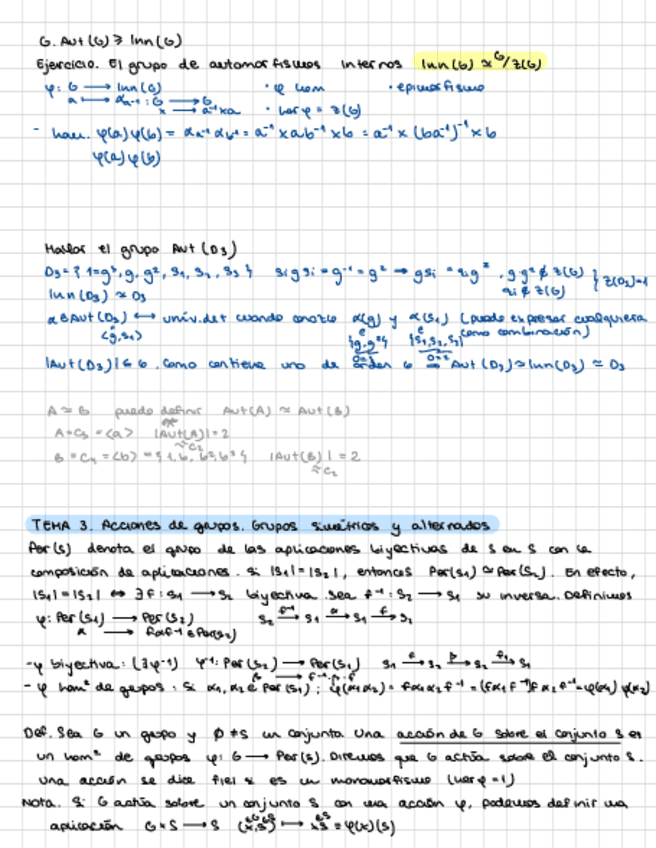 G. Aut(G) ≥ Inn(G)
Ejercicio. El grupo de automorfismos internos Inn(G) ≃ G/Z(G)
φ: G → Inn(G) · φ hom · epimorfismo
a ↦ αₐ₋₁ : G → G · ker φ = Z(G)
x → a⁻¹xa
- hom. φ(a)φ(b) = αₐ₋₁ α_b⁻¹ = a⁻¹xab⁻¹xb = a⁻¹x(ba⁻¹)⁻¹xb
φ(a)φ(b)
Hallar el grupo Aut(D₃)
D₃ = {1=g³, g, g², s₁, s₂, s₃} sᵢgsᵢ = g⁻¹ = g² → gsᵢ = sᵢg², g·g² ∉ Z(G) } Z(D₃)=1
Inn(D₃) ≃ D₃ sᵢ ∉ Z(G)
α∈Aut(D₃) ↔ univ. det cuando conozco α(g) y α(s₁) (puedo expresar cualquiera
<g,s₁> {g,g²} {s₁,s₂,s₃} como combinación)
|Aut(D₃)| ≤ 6. Como contiene uno de orden 6 ⇒ Aut(D₃) ≃ Inn(D₃) ≃ D₃
A ≃ B puedo definir Aut(A) ≃ Aut(B)
A = C₃ = <a> |Aut(A)| = 2
≃C₂
B = C₄ = <b> = {1, b, b², b³} |Aut(B)| = 2
≃C₂
TEMA 3. Acciones de grupos. Grupos simétricos y alternados
Per(S) denota el grupo de las aplicaciones biyectivas de S en S con la
composición de aplicaciones. Si |S₁| = |S₂|, entonces Per(S₁) ≃ Per(S₂). En efecto,
|S₁| = |S₂| ⇔ ∃ f: S₁ → S₂ biyectiva. Sea f⁻¹: S₂ → S₁ su inversa. Definimos
φ: Per(S₁) → Per(S₂) S₂ →f⁻¹ S₁ →α S₁ →f S₂
α → fαf⁻¹ ∈ Per(S₂)
- φ biyectiva: (∃φ⁻¹) φ⁻¹: Per(S₂) → Per(S₁) S₁ →f S₂ →β S₂ →f⁻¹ S₁
β → f⁻¹·β·f
- φ homº de grupos: Si α₁, α₂ ∈ Per(S₁); φ(α₁α₂) = fα₁α₂f⁻¹ = (fα₁f⁻¹)fα₂f⁻¹ = φ(α₁)φ(α₂)
Def. Sea G un grupo y ∅ ≠ S un conjunto. Una acción de G sobre el conjunto S es
un homº de grupos φ: G → Per(S). Diremos que G actúa sobre el conjunto S.
Una acción se dice fiel si es un monomorfismo (ker φ = 1)
Nota. Si G actúa sobre un conjunto S con una acción φ, podemos definir una
aplicación G×S → S (x,s) ↦ ˣs = φ(x)(s)